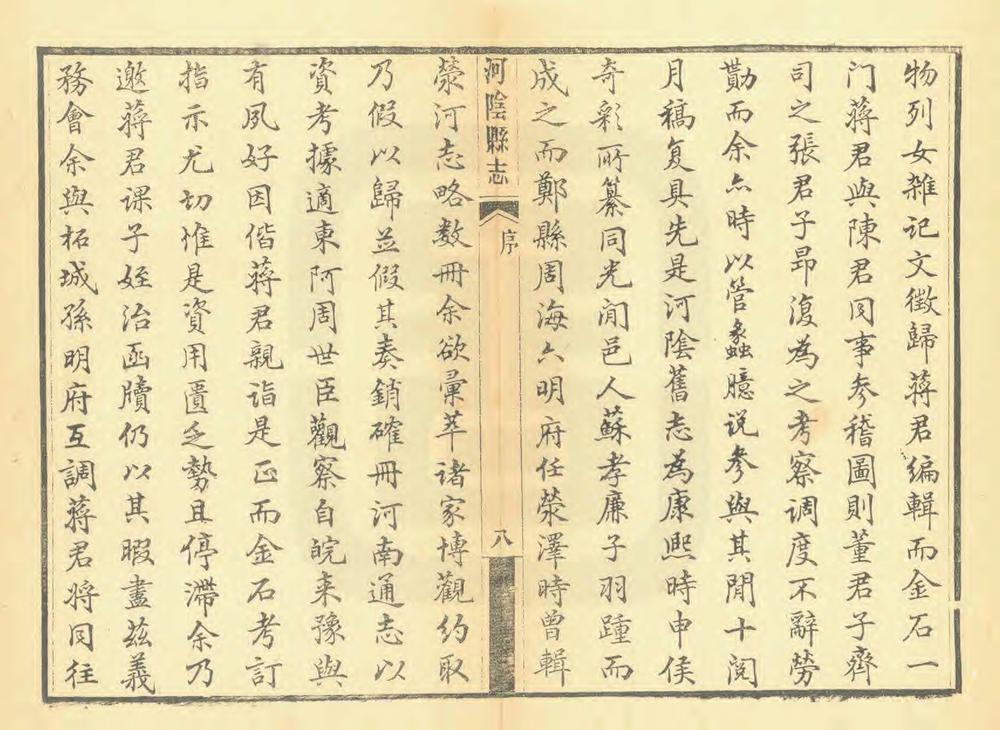 物列女雜记文徵歸蔣君编輯而金石一
门蔣君與陳君同事参稽圖則董君子齊
司之張君子昂復為之考察调度不辭勞
勩而余亦時以管蠡臆说参與其間十閲
月稿复具先是河陰舊志為康熙時申侯
奇彩所纂同光间邑人蘇孝廉子羽踵而
成之而鄭縣周海六明府任荥澤時曾輯
河陰縣志
序
八
荥河志略数冊余欲彙萃诸家博觀约取
乃假以歸並假其奏銷確冊河南通志以
資考據適東阿周世臣觀察自皖来豫與
有夙好因偕蔣君親诣是正而金石考訂
指示尤切惟是資用匱乏勢且停滯余乃
邀蔣君课子姪治函牘仍以其暇盡兹義
務會余與柘城孫明府互調蔣君将同往